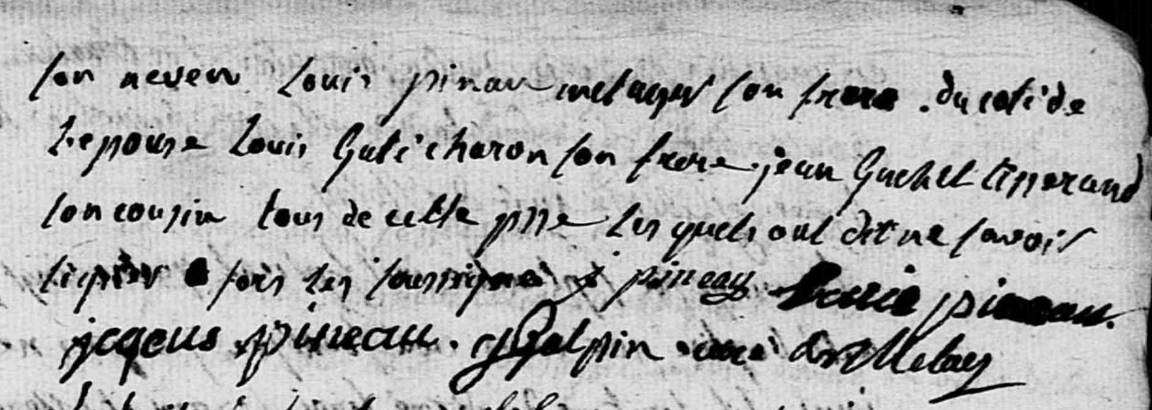 son neveu Louis pinau metayer son frere . du coté de
l'epouse Louis Gaticharon son frere jean Guchet tisserand
son cousin tous de cette psse lesquels ont dit ne savoir
signer fors les soussignés j pineau Louis pineau.
jaques pineau . Galpin curé de Melay